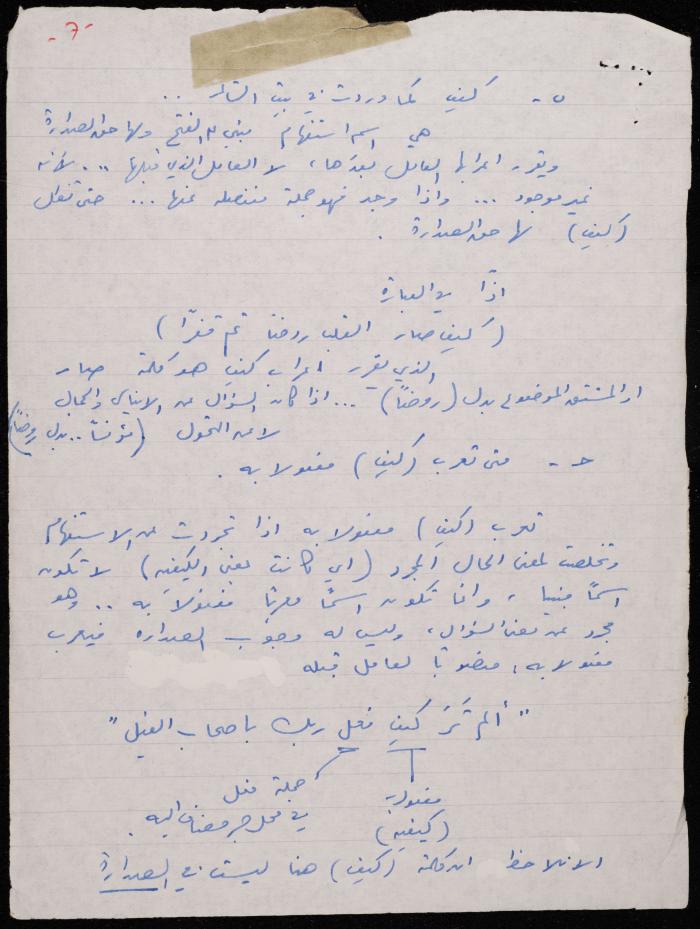 -٦-
ب- كيف كما وردت في بيت الشاعر ..
هي اسم استفهام مبني على الفتح ولها حق الصدارة
ويقرر اعرابها العامل بعدها، لا العامل الذي قبلها .. لأنه
غير موجود ... واذا وجد فهو جملة منفصلة عنها ... حتى تظل
(كيف) لها حق الصدارة .
اذاً في العبارة
(كيف صار القلب روضاً ثم قفرا)
الذي يقرر اعراب كيف هو كلمة صار
او المشتق الموضوع بدل (روضاً) ... اذا كان السؤال عن والحال
لا عن التحول (.. بدل روضاً)
ح- متى تعرب (كيف) مفعولا به .
تعرب (كيف) مفعولا به اذا تجردت عن الاستفهام
وتخلصت لمعنى الحال المجرد (اي كانت بمعنى الكيفية) لا تكون
اسماً مبنيا، وانما تكون اسماً معربا مفعولاً به .. وهو
مجرد عن معنى السؤال، وليس له وجوب الصدارة فيعرب
مفعولا به، منصوبا لعامل قبله
"ألم تَرَ كيف فعل ربك بأصحاب الفيل"
جملة فعل
في محل جر مضاف اليه .
مفعول به
(كيفية)
الا نلاحظ ان كلمة (كيف) هنا ليست في الصدارة